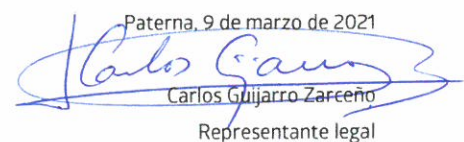 Paterna, 9 de marzo de 2021
Carlos Guijarro
Carlos Guijarro Zarceño
Representante legal